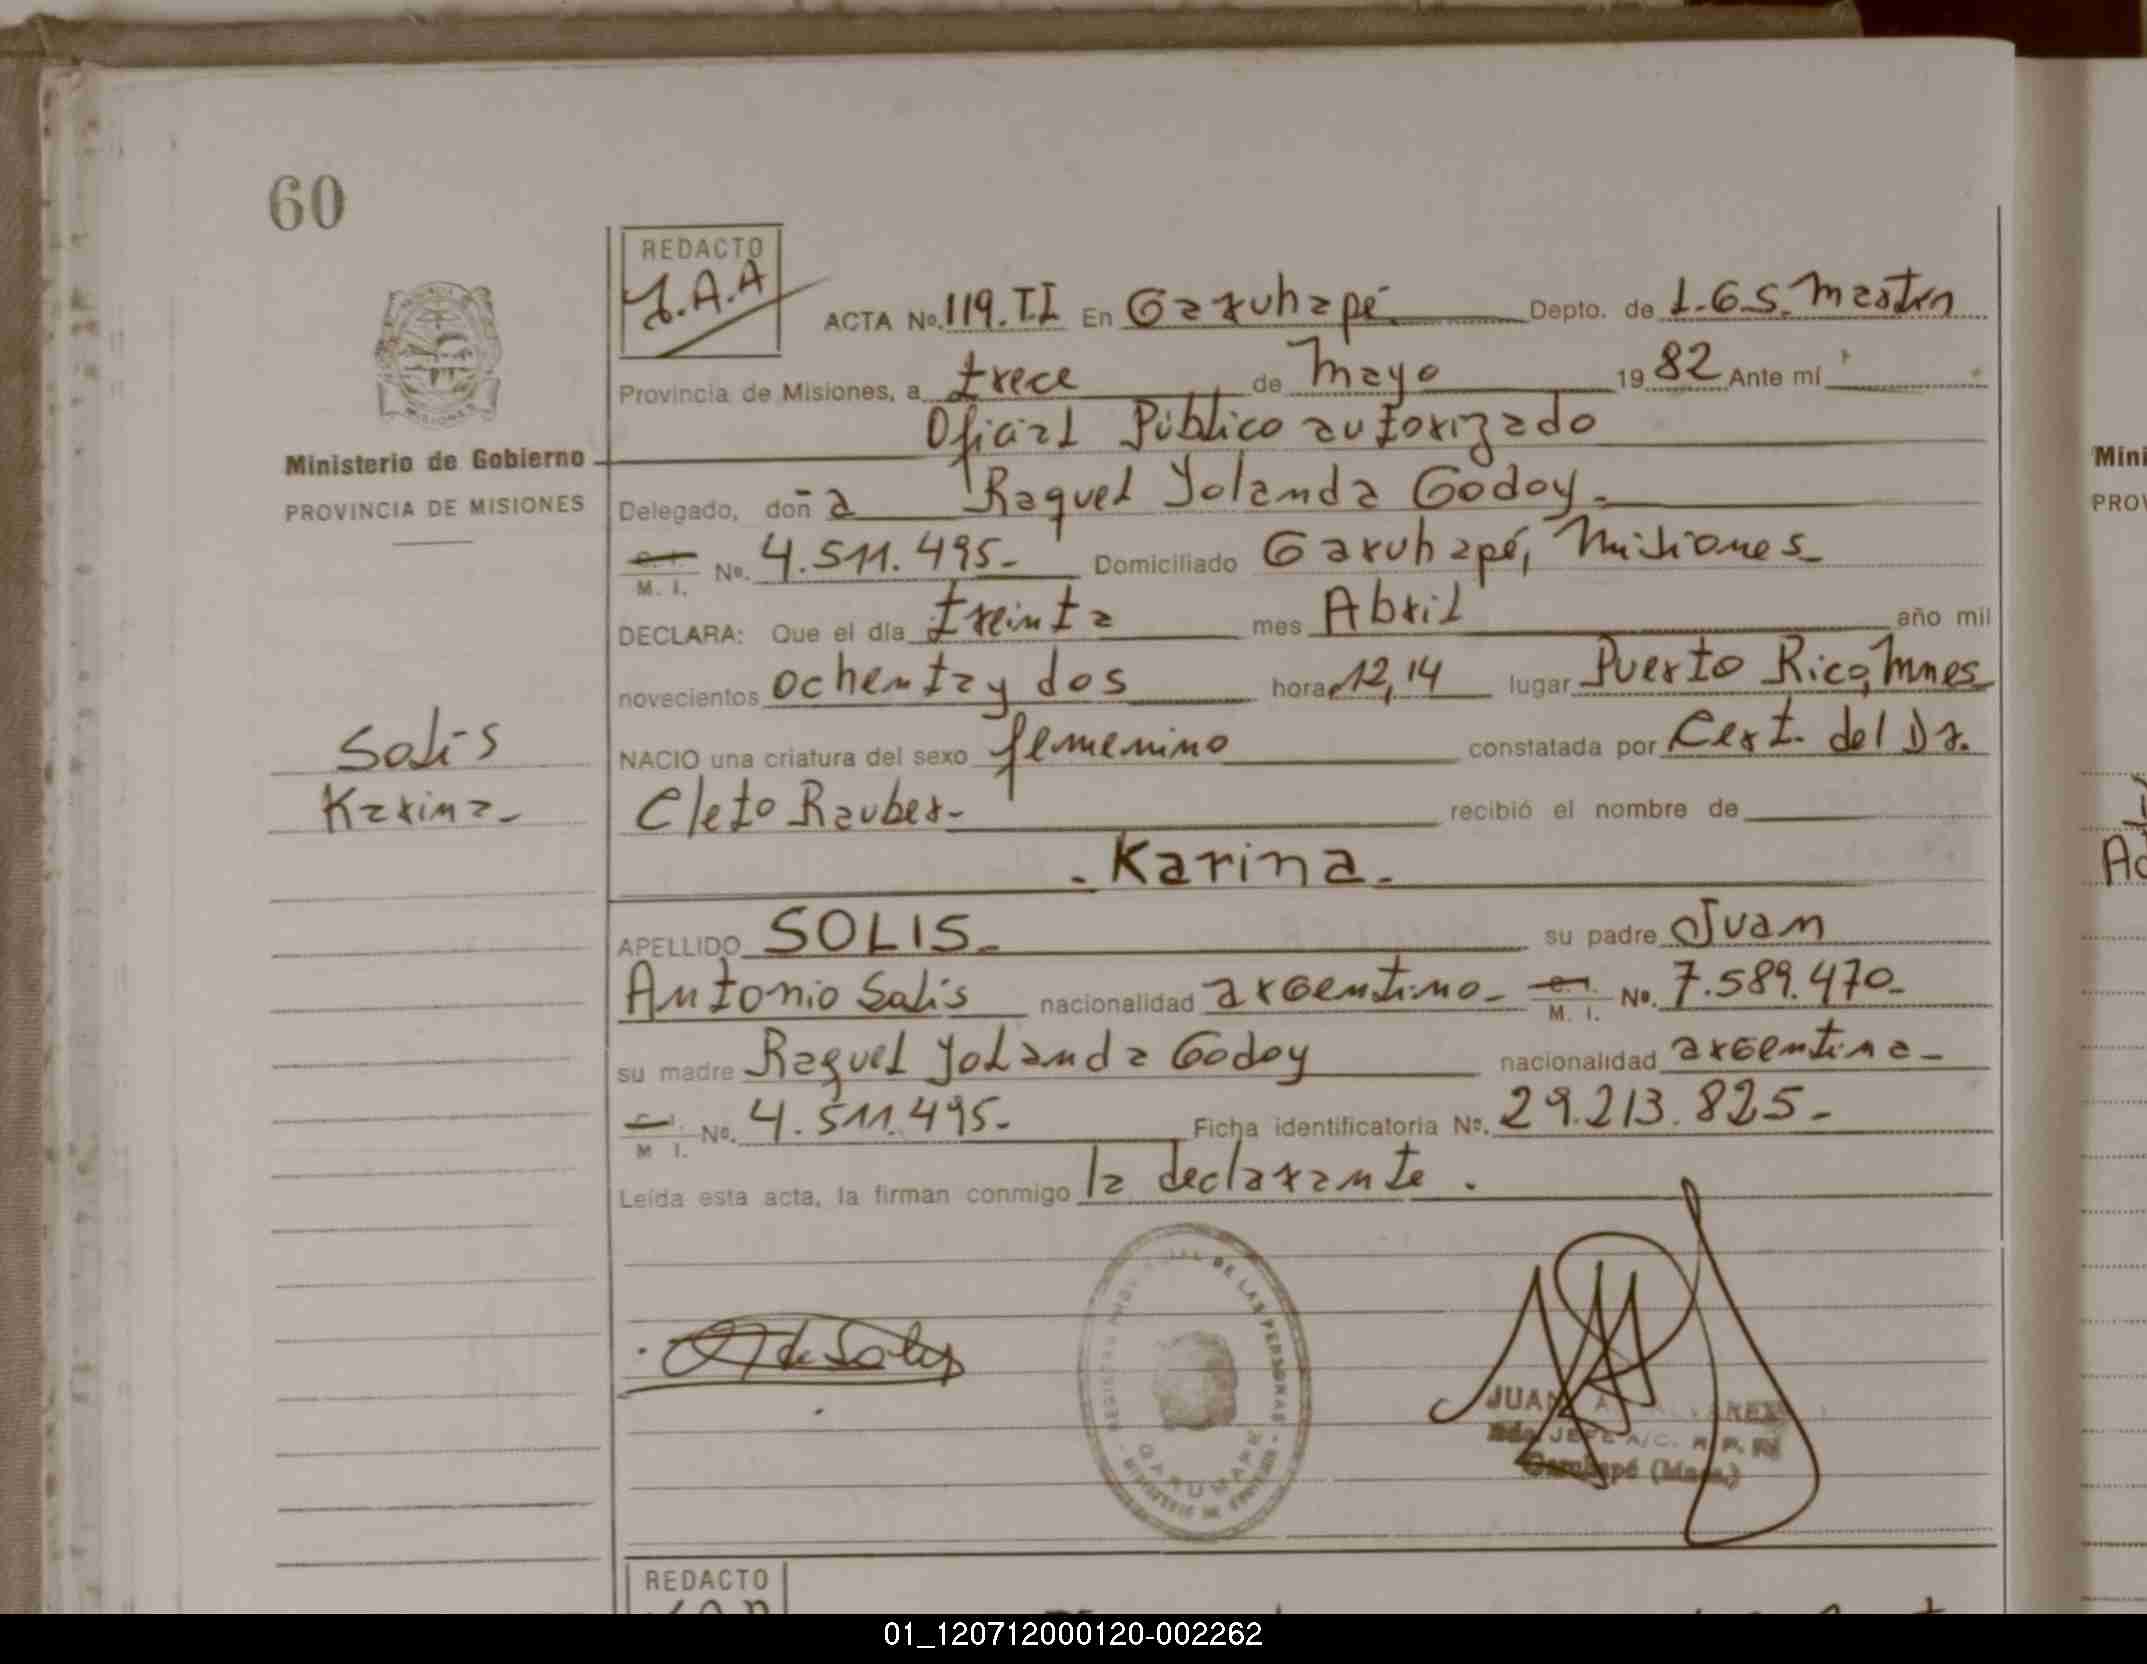 60
REDACTO
J.A.A
ACTA No. 119.T.I En Garuhapé Depto. de L.G.S. Martin
Provincia de Misiones, a trece de Mayo 1982 Ante mí
Oficial Público autorizado
Ministerio de Gobierno
PROVINCIA DE MISIONES
Delegado, doña Raquel Yolanda Godoy.
M. I. No. 4.511.495.- Domiciliado Garuhapé, Misiones
DECLARA: Que el día treinta mes Abril año mil
novecientos ochenta y dos hora 12,14 lugar Puerto Rico, Mnes
NACIO una criatura del sexo femenino constatada por Cert. del Dr.
Cleto Rauber- recibió el nombre de
- Karina -
Solis
Karina-
APELLIDO SOLIS- su padre Juan
Antonio Solis nacionalidad argentino- M. I. No. 7.589.470-
su madre Raquel Yolanda Godoy nacionalidad argentina-
M I. No. 4.511.495- Ficha identificatoria No. 29.213.825-
Leída esta acta, la firman conmigo la declarante.
de Solis
DE LAS PERSONAS
GARUHAPE
JUAN A. ALVAREZ
JEFE A/C. R. P. P.
Garuhapé (Mnes.)
REDACTO
01_120712000120-002262